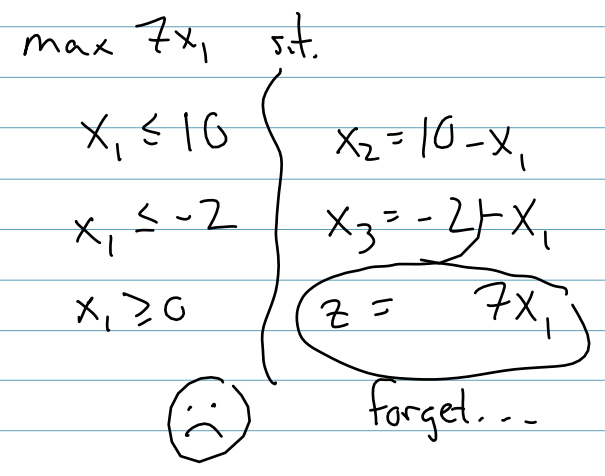 max 7x₁ s.t.
x₁ ≤ 10
x₁ ≤ -2
x₁ ≥ 0
x₂ = 10 - x₁
x₃ = -2 - x₁
z = 7x₁
forget...